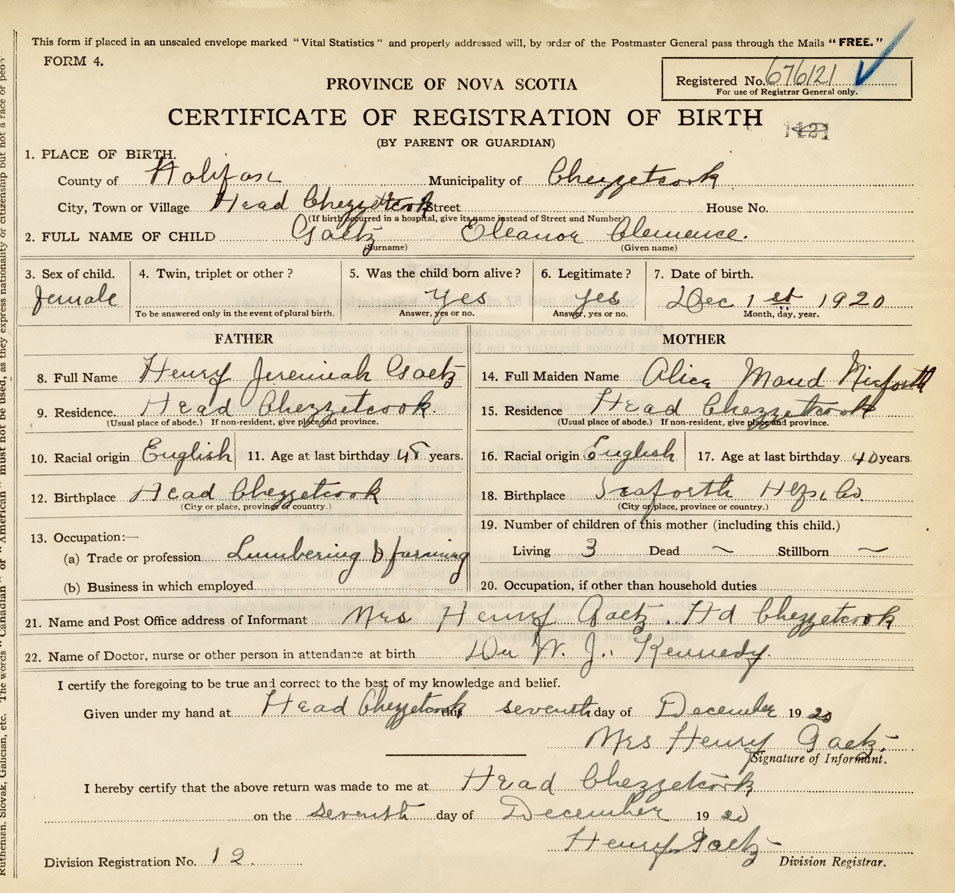 This form if placed in an unsealed envelope marked "Vital Statistics" and properly addressed will, by order of the Postmaster General pass through the Mails "FREE."
FORM 4.
Registered No. 676121
For use of Registrar General only.
PROVINCE OF NOVA SCOTIA
CERTIFICATE OF REGISTRATION OF BIRTH
(BY PARENT OR GUARDIAN)
1. PLACE OF BIRTH.
County of Halifax Municipality of Chezzetcook
City, Town or Village Head Chezzetcook Street House No.
(If birth occurred in a hospital, give its name instead of Street and Number)
2. FULL NAME OF CHILD Gaetz Eleanor Clemence.
(Surname) (Given name)
3. Sex of child. 4. Twin, triplet or other? 5. Was the child born alive? 6. Legitimate? 7. Date of birth.
female yes yes Dec 1st 1920
To be answered only in the event of plural birth. Answer, yes or no. Answer, yes or no. Month, day, year.
FATHER MOTHER
8. Full Name Henry Jeremiah Gaetz 14. Full Maiden Name Alice Maud
9. Residence. Head Chezzetcook. 15. Residence Head Chezzetcook
(Usual place of abode.) If non-resident, give place and province. (Usual place of abode.) If non-resident, give place and province.
10. Racial origin English 11. Age at last birthday years. 16. Racial origin English 17. Age at last birthday 40 years.
12. Birthplace Head Chezzetcook 18. Birthplace Seaforth Hfx. Co.
(City or place, province or country.) (City or place, province or country.)
19. Number of children of this mother (including this child.)
13. Occupation:—
(a) Trade or profession Lumbering & farming Living 3 Dead ~ Stillborn ~
(b) Business in which employed 20. Occupation, if other than household duties
21. Name and Post Office address of Informant Mrs Henry Gaetz. Hd Chezzetcook
22. Name of Doctor, nurse or other person in attendance at birth Dr W. J. Kennedy.
I certify the foregoing to be true and correct to the best of my knowledge and belief.
Given under my hand at Head Chezzetcook this seventh day of December 1920
Mrs Henry Gaetz.
Signature of Informant.
I hereby certify that the above return was made to me at Head Chezzetcook
on the seventh day of December 1920
Henry Gaetz
Division Registration No. 12. Division Registrar.